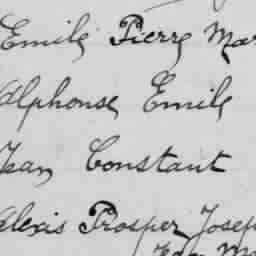 Emile Pierre Mar
Alphonse Emile
Jean Constant
Alexis Prosper Joseph